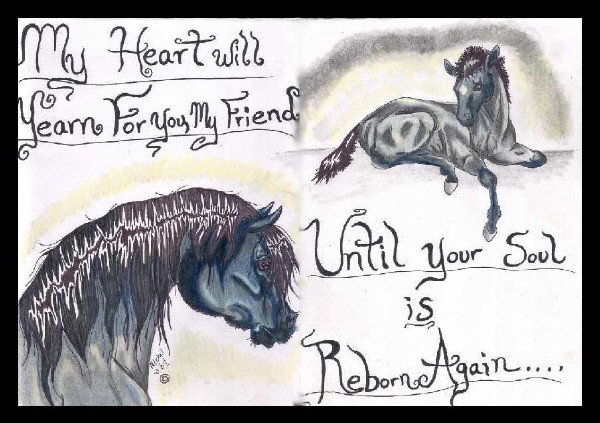 My Heart will
Yearn For You, My Friend
Until your Soul
is
Reborn Again....
©